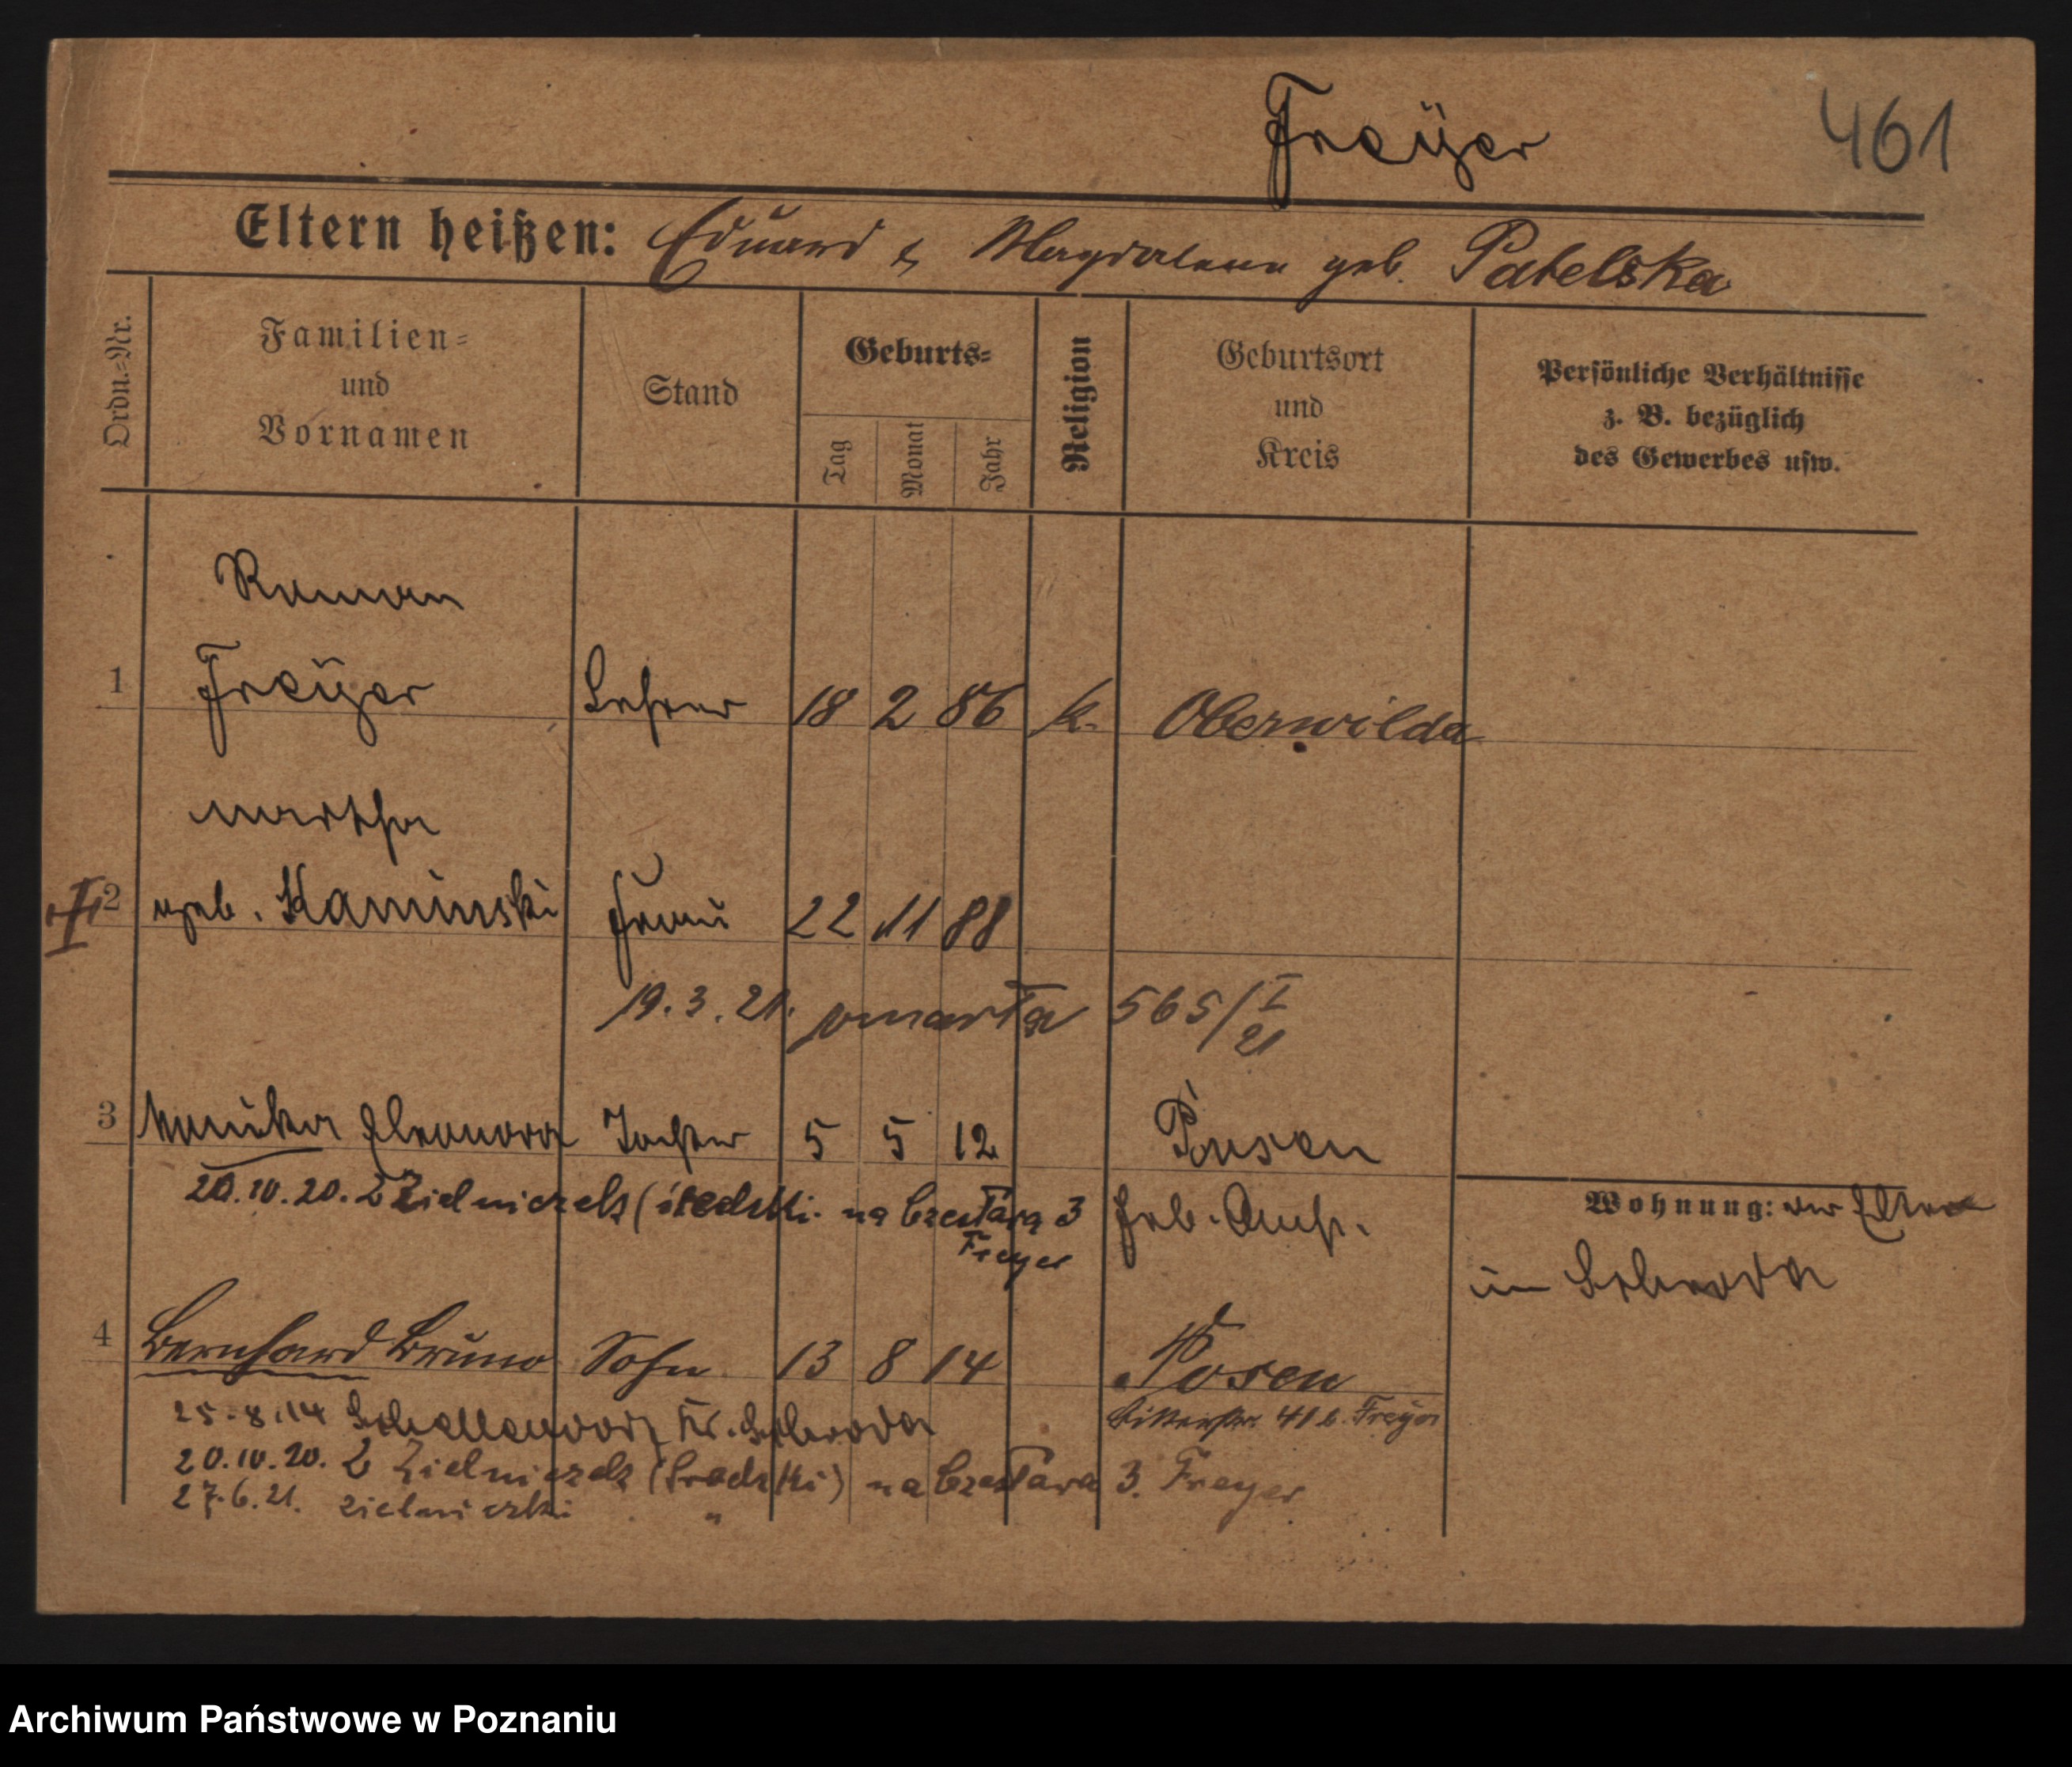 Freÿer 461
Eltern heißen: Eduard & Magdalena geb. Patelska
Ordn.=Nr.
Familien=
und
Vornamen
Stand
Geburts=
Tag
Monat
Jahr
Religion
Geburtsort
und
Kreis
Persönliche Verhältnisse
z. B. bezüglich
des Gewerbes usw.
Roman
1 Freÿer Lehrer 18 2 86 k. Oberwilda
Martha
2 geb. Kaminski Frau 22 11 88
19.3.21. zmarła 565/I
21
3 Monika Eleonora Tochter 5 5 12 Posen
20.10.20. Z Zielniczek na Czesława 3
Freyer
Geb. Ausk.
Wohnung: der Eltern
in Schroda
4 Bernhard Bruno Sohn 13 8 14 Posen
Ritterstr. 41 b. Freyer
25.8.14 Kr. Schroda
20.10.20. Z Zielniczek (Średzki) na Czesława 3. Freyer
27.6.21. Zielniczki "
Archiwum Państwowe w Poznaniu